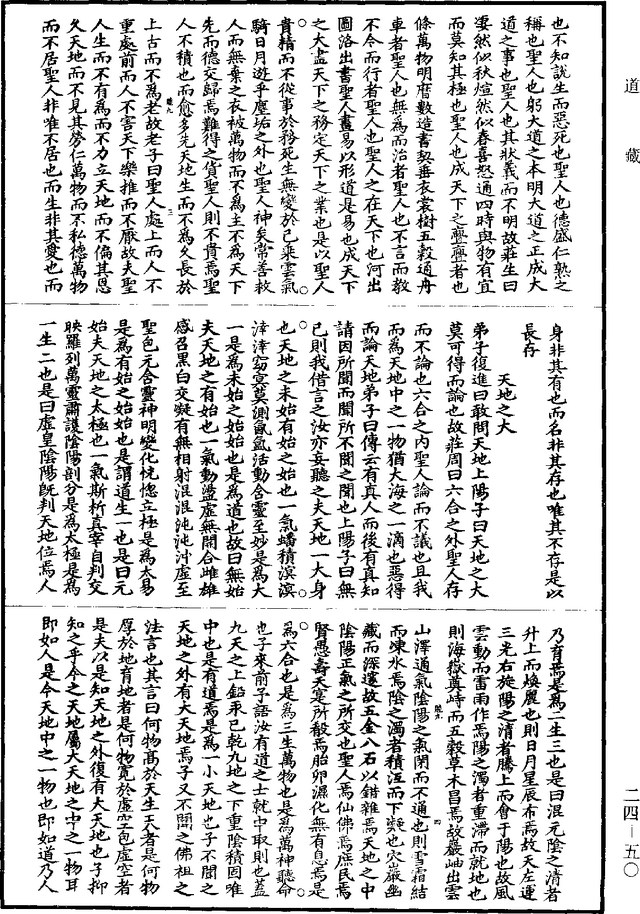 道藏
二四—五〇
也不知說生而惡死也聖人也德盛仁熟之
稱也聖人也躬大道之本明大道之正成大
道之事也聖人也其狀義而不明故莊生曰
淒然似秋煖然似春喜怒通四時與物有宜
而莫知其極也聖人也成天下之亹亹者也
條萬物明曆數造書契垂衣裳樹五穀通舟
車者聖人也無為而治者聖人也不言而教
不令而行者聖人也聖人之在天下也河出
圖洛出書聖人畫易以形道是易也成天下
之大盡天下之務定天下之業也是以聖人
貴精而不從事於務死生無變於己乘雲氣
騎日月遊乎塵垢之外也聖人神矣常善救
人而無棄之衣被萬物而不為主不為天下
先而德交歸焉難得之貨聖人則不貴焉聖
人不積也而愈多先天地生而不為久長於
上古而不為老故老子曰聖人處上而人不
重處前而人不害天下樂推而不厭故夫聖
人生而不有為而不力立天地而不倫其恩
久天地而不見其勞仁萬物而不私德萬物
而不居聖人非唯不居也而生非其愛也而
身非其有也而名非其存也唯其不存是以
長存
天地之大
弟子復進曰敢問天地上陽子曰天地之大
莫可得而論也故莊周曰六合之外聖人存
而不論也六合之內聖人論而不議也且我
而為天地中之一物猶大海之一滴也惡得
而論天地弟子曰傳云有真人而後有真知
請因所聞而聞所不聞之聞也上陽子曰無
已則我借言之汝亦妄聽之夫天地一大身
也天地之未始有始之始也一氣蟠積溟溟
涬涬窈窈莫測氤氳活動含靈至妙是為太
一是為未始之始始也是為道也故曰無始
夫天地之有始也一氣動盪虛無開合雌雄
感召黑白交凝有無相射混混沌沌沖虛至
聖包元含靈神明變化恍惚立極是為太易
是為有始之始始也是謂道生一也是曰元
始夫天地之太極也一氣斯析真宰自判交
映羅列萬靈肅護陰陽剖分是為太極是為
一生二也是曰虛皇陰陽既判天地位焉人
乃育焉是為二生三也是曰混元陰之清者
升上而煥麗也則日月星辰布焉故天左運
三光右旋陽之清者騰上而會于陽也故風
雲動而雷雨作焉陽之濁者重滯而就地也
則海嶽奠峙而五穀草木昌焉故巖岫出雲
山澤通氣陰陽之氣閉而不通也則雪霜結
而凍水焉陰之濁者積沍而下凝也穴巖幽
藏而深邃故五金八石以錯雜焉天地之中
陰陽正氣之所交也聖人焉仙佛焉庶民焉
賢愚壽夭寔所殺焉胎卵濕化無有息焉是
為六合也是為三生萬物也是為萬神聽命
也子來前子語汝有道之士就中取則也蓋
九天之上鉛汞已乾九地之下重陰積固唯
中也是有道焉是為一小天地也子不聞之
天地之外有大天地焉子又不聞之佛祖之
法言也其言曰何物高於天生天者是何物
厚於地育地者是何物寬於虛空包虛空者
是夫以是知天地之外復有大天地也子抑
知之乎今之天地屬大天地之中之一物耳
即如人是今天地中之一物也即如道乃人